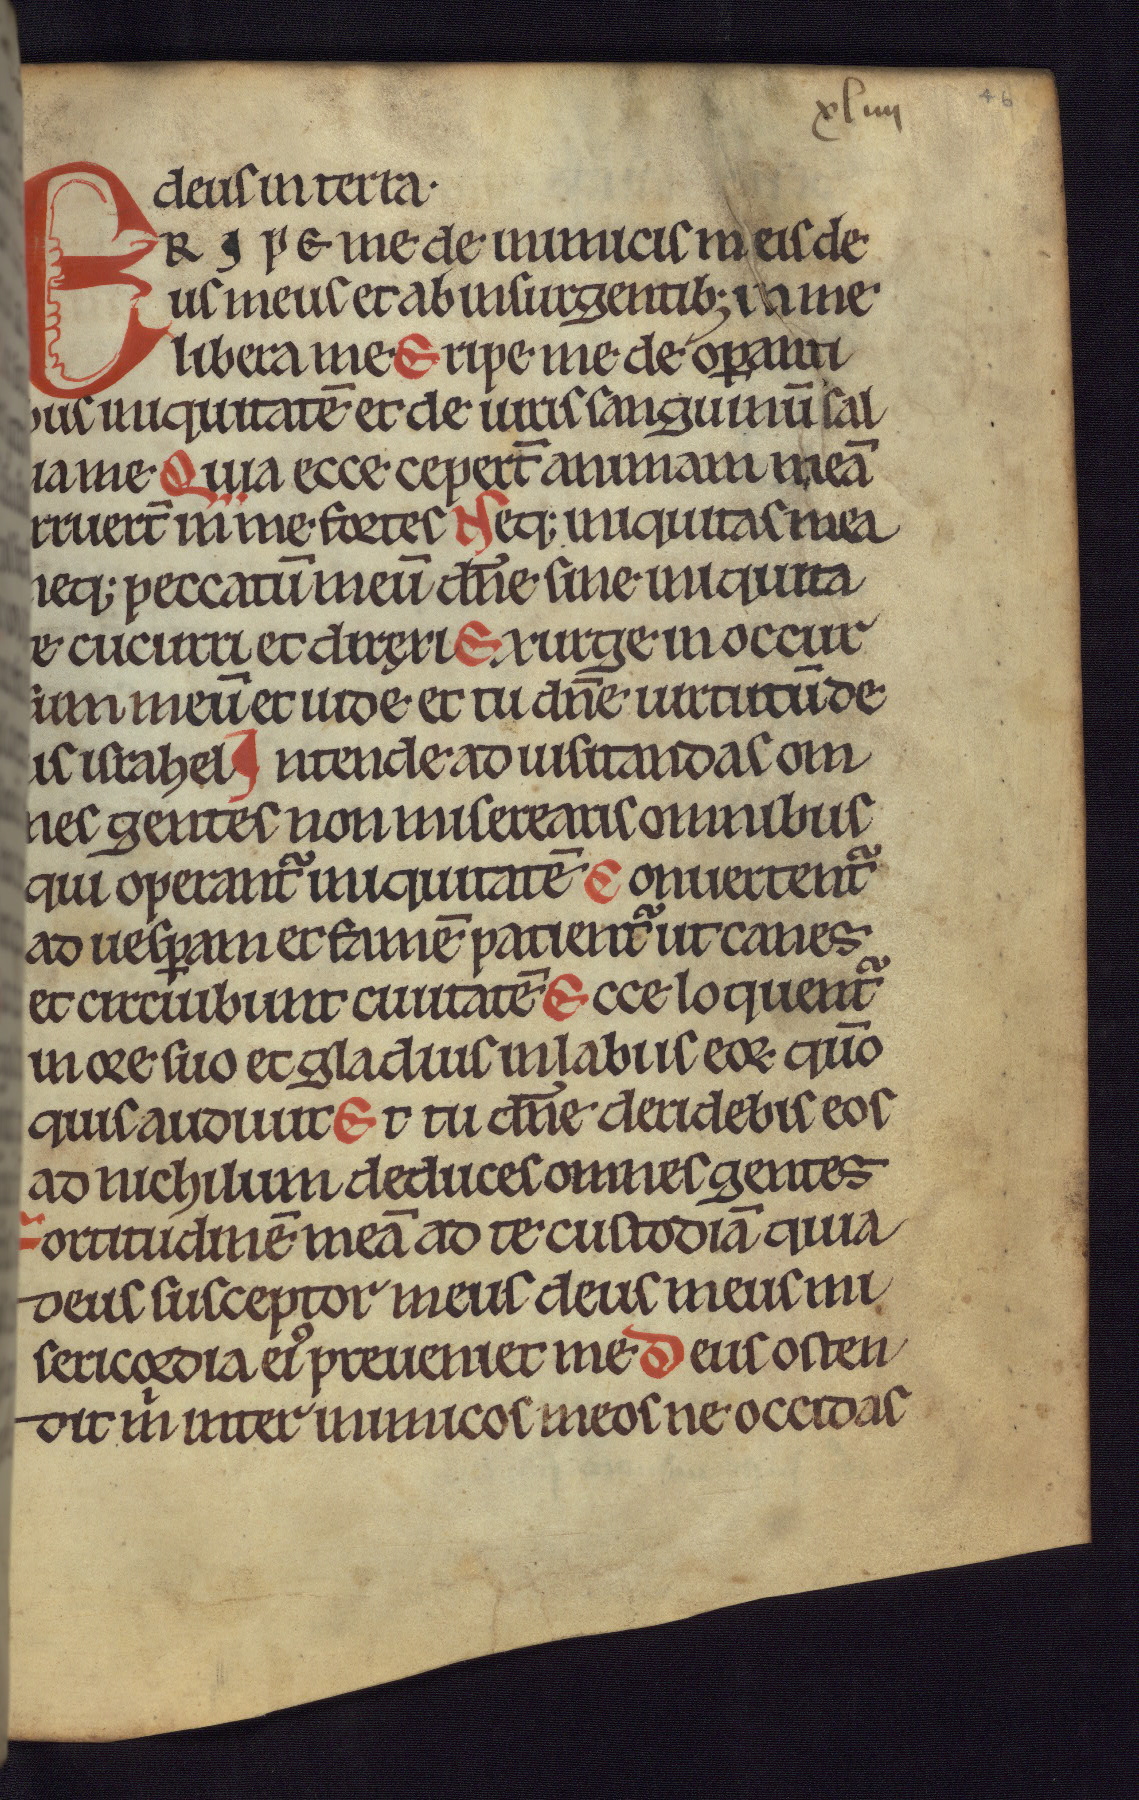 xliiii 46
deus in terra.
ERIPE me de inimicis meis de
us meus et ab insurgentib; in me
libera me Eripe me de op̱eranti
bus iniquitatē et de uiris sanguinū sal
ua me Quia ecce cepert̄ animam meā
irruert̄ in me fortes Neq; iniquitas mea
neq; peccatū meū dn̄e sine iniquita
te cucurri et direxi Exurge in occur
sum meū et uide et tu dn̄e uirtutū de
us israhel Intende ad uisitandas om
nes gentes non miserearis omnibus
qui operant᷑ iniquitatē Conuertent᷑
ad uesꝑam et famē patient᷑ ut canes
et circuibunt ciuitatē Ecce loquent᷑
in ore suo et gladius in labiis eoꝝ qūo
quis audiuit Et tu dn̄e deridebis eos
ad nichilum deduces omnes gentes
Fortitudinē meā ad te custodiā quia
deus susceptor meus deus meus mi
sericordia ei⁹ preueniet me Deus osten
dit m̍ inter inimicos meos ne occidas